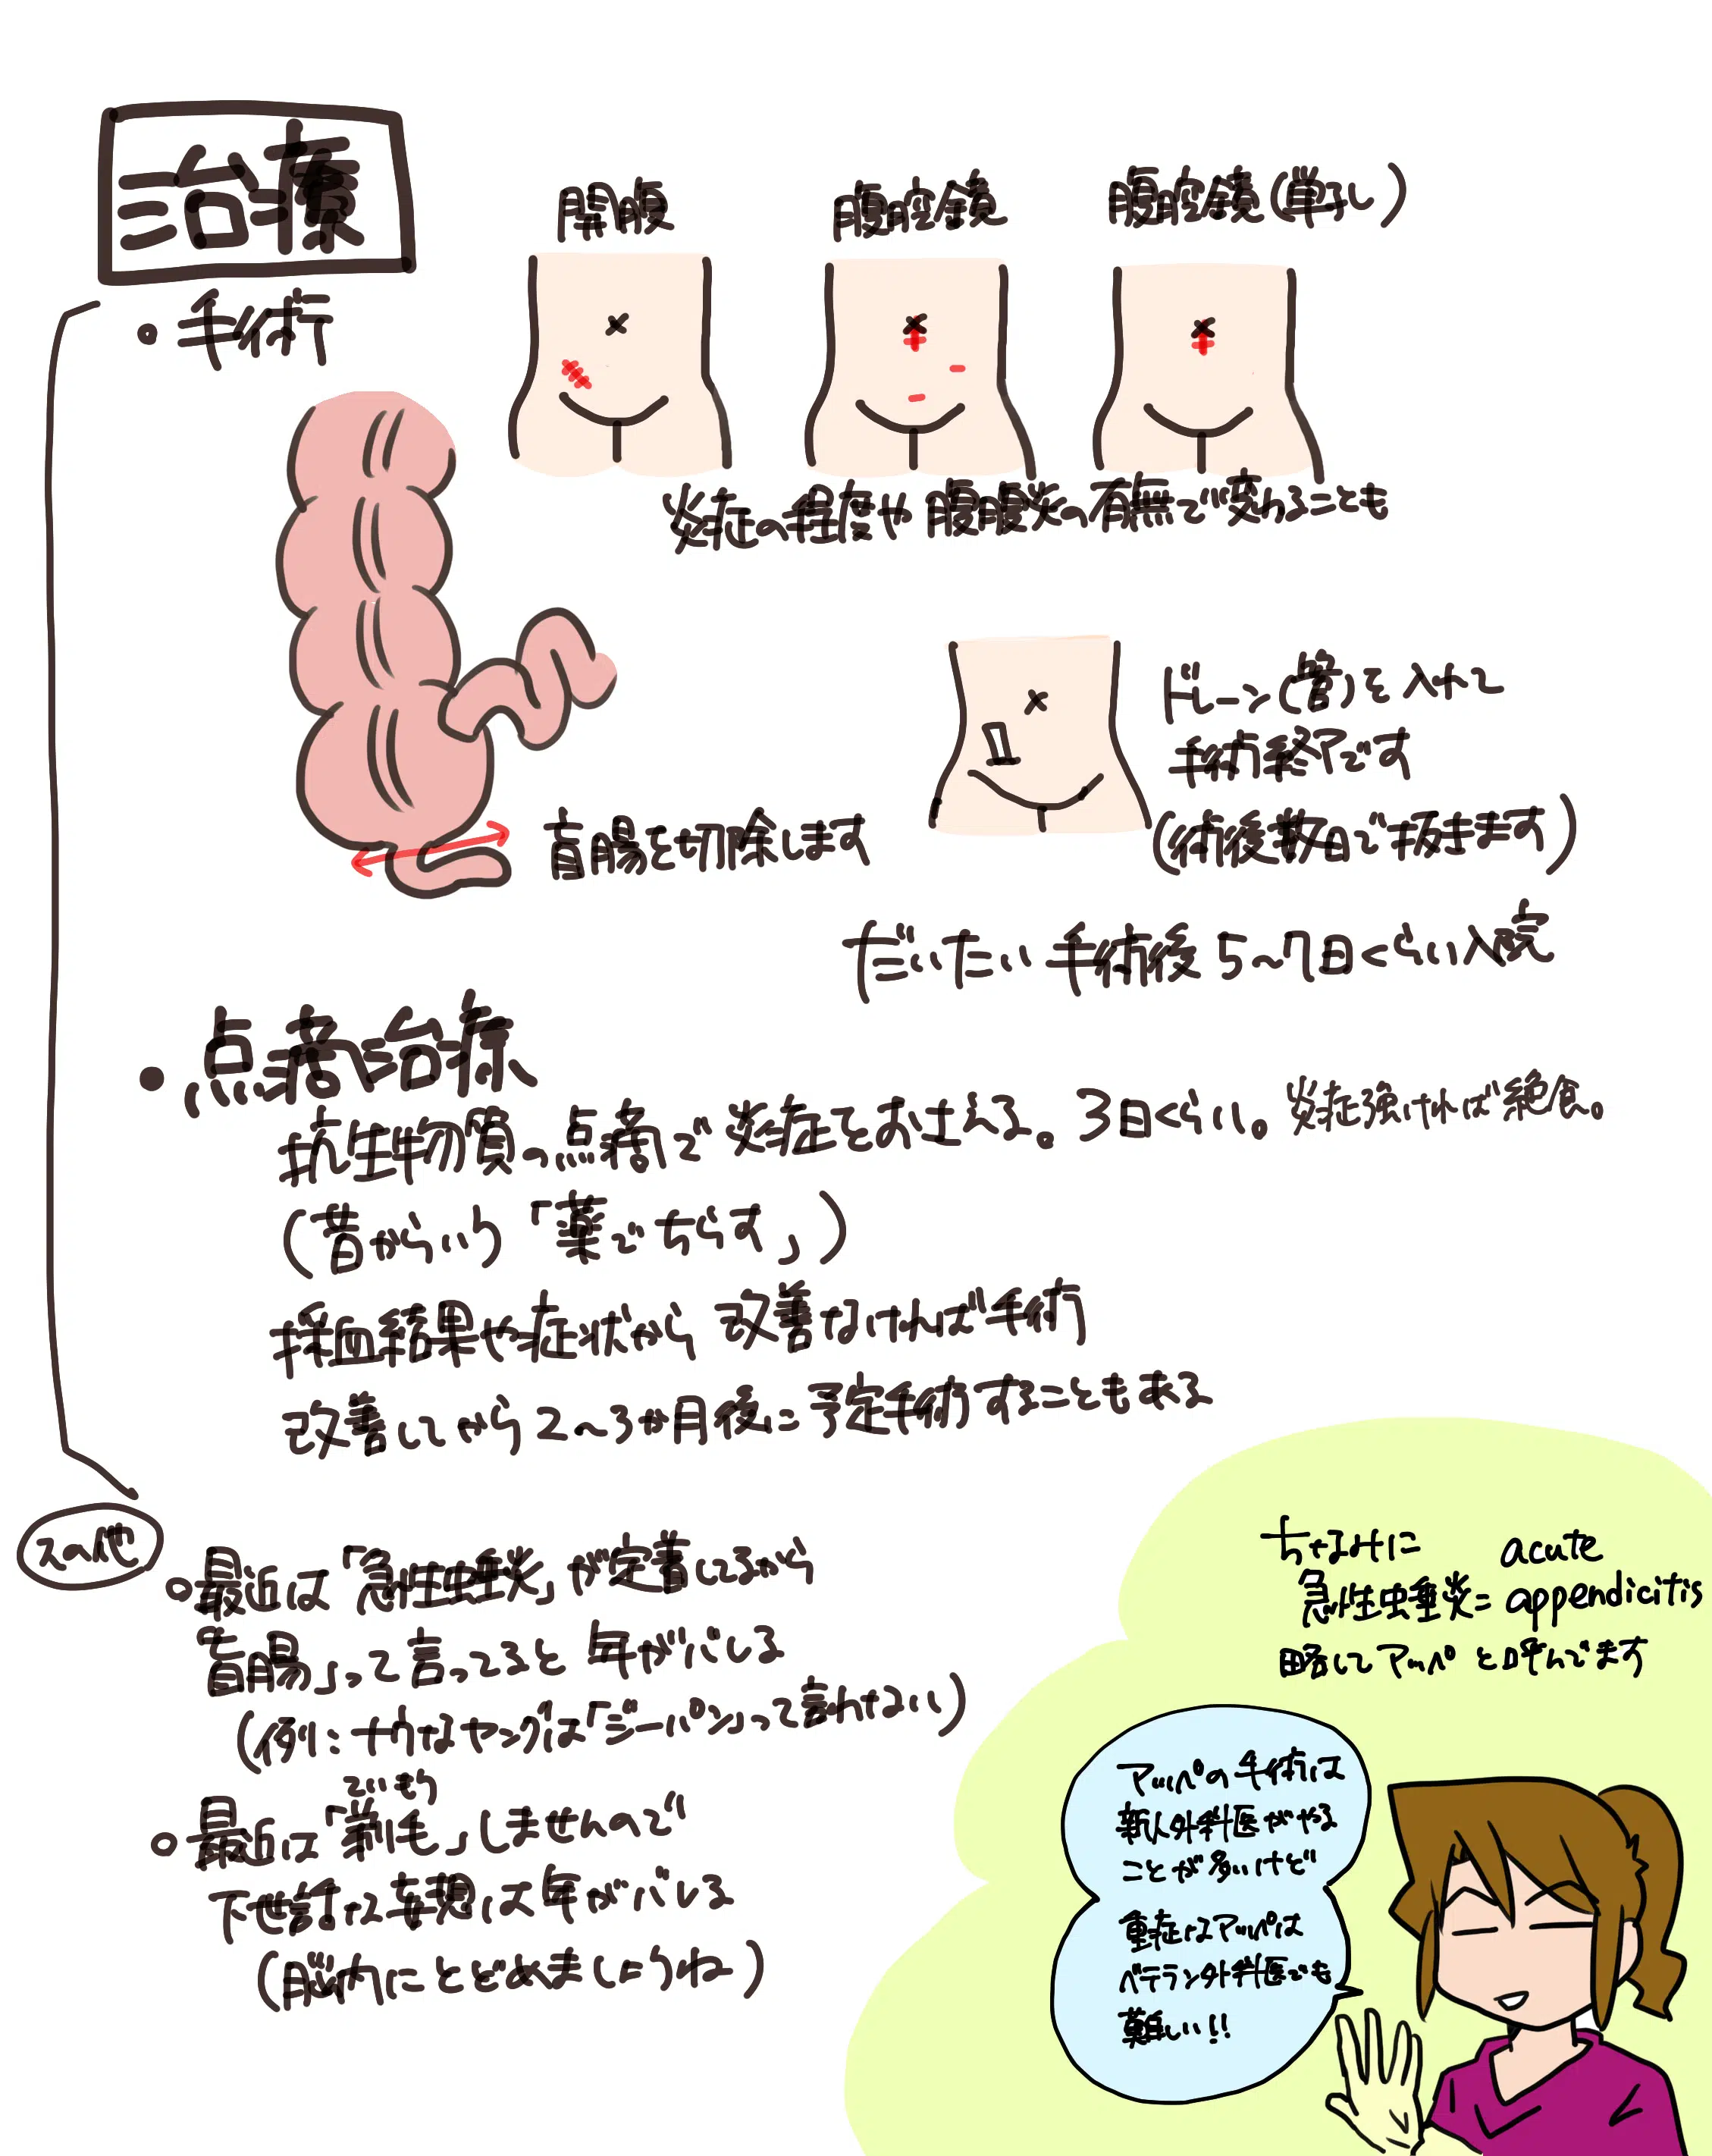 治療
・手術
開腹
腹腔鏡
腹腔鏡(単孔し)
炎症の程度や腹膜炎の有無で変わることも
盲腸を切除します
ドレーン(管)を入れて
手術終了です
(術後数日で抜きます)
だいたい手術後5～7日くらい入院
・点滴治療
抗生物質の点滴で炎症をおさえる。3日くらい。炎症強ければ絶食。
(昔からいう「薬でちらす」)
採血結果や症状から改善なければ手術
改善してから2～3か月後に予定手術することもある
その他
○最近は「急性虫垂炎」が定着してるから
「盲腸」って言ってると年がバレる
(例:ナウなヤングは「ジーパン」って言わない)
ていもう
○最近は「剃毛」しませんので
下世話な妄想は年がバレる
(脳内にとどめましょうね)
ちなみに acute
急性虫垂炎=appendicitis
略してアッペと呼んでます
アッペの手術は
新人外科医がやる
ことが多いけど
重症なアッペは
ベテラン外科医でも
難しい!!